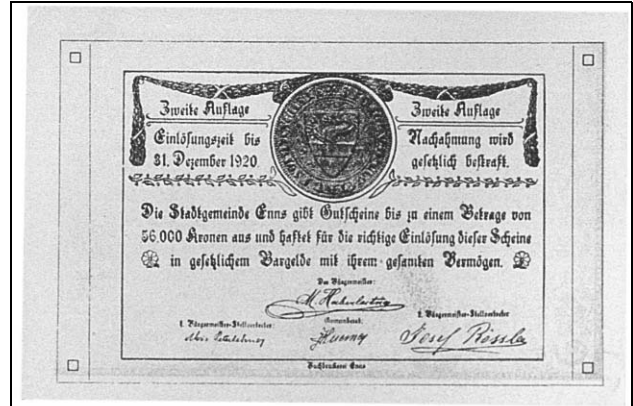 Zweite Auflage
Einlösungszeit bis
31. Dezember 1920.
Zweite Auflage
Nachahmung wird
gesetzlich bestraft.
Die Stadtgemeinde Enns gibt Gutscheine bis zu einem Betrage von
56.000 Kronen aus und haftet für die richtige Einlösung dieser Scheine
in gesetzlichem Bargelde mit ihrem gesamten Vermögen.
Der Bürgermeister:
1. Bürgermeister-Stellvertreter:
Gemeinderat:
2. Bürgermeister-Stellvertreter
Josef Ressler
Buchdruckerei Enns